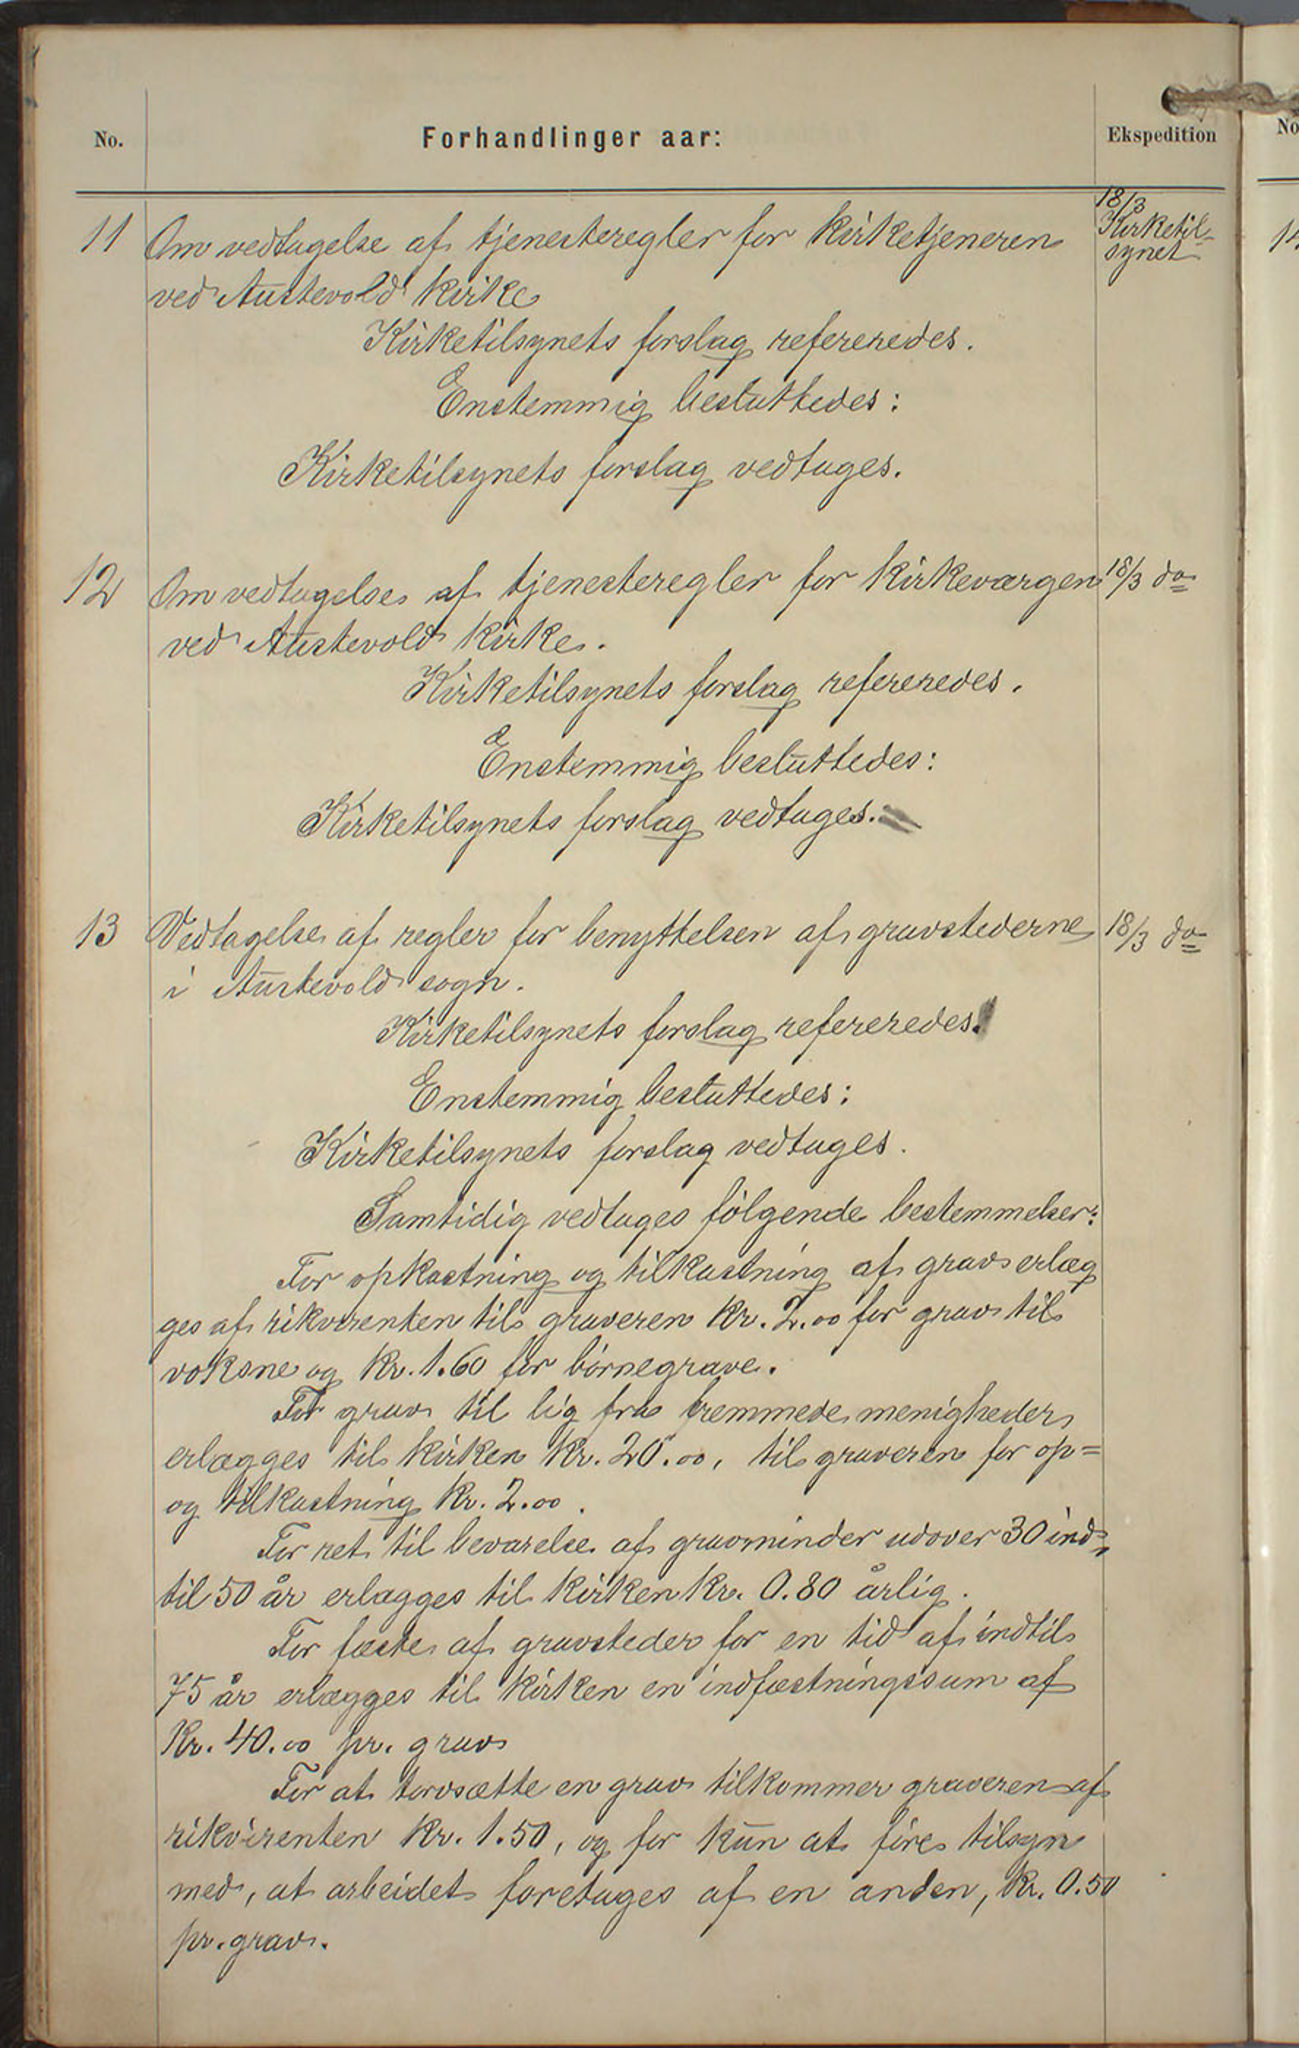 No.
Forhandlinger aar:
Ekspedition
No
11
Om vedtagelse af tjenesteregler for kirketjeneren
18/3
Kirketil-
synet
ved Austevold kirke
Kirketilsynets forslag refereredes.
Enstemmig besluttedes:
Kirketilsynets forslag vedtages.
12
Om vedtagelse af tjenesteregler for kirkeværgen
18/3 do
ved Austevold kirke.
Kirketilsynets forslag refereredes.
Enstemmig besluttedes:
Kirketilsynets forslag vedtages.
13
Vedtagelse af regler for benyttelsen af gravstederne
18/3 do
i Austevold sogn.
Kirketilsynets forslag refereredes.
Enstemmig besluttedes:
Kirketilsynets forslag vedtages.
Samtidig vedtages følgende bestemmelser:
For opkastning og tilkastning af grav erlæg
ges af rikvirenten til graveren kr. 2.00 for grav til
voksne og kr. 1.60 for børnegrave.
For grav til lig fra fremmede menigheder
erlægges til kirken kr. 20.00, til graveren for op=
og tilkastning kr. 2.00.
For ret til bevarelse af gravminder udover 30 ind-
til 50 år erlægges til kirken kr. 0.80 årlig.
For fæste af gravsteder for en tid af indtil
75 år erlægges til kirken en indfæstningssum af
kr. 40.00 pr. grav
For at torvsætte en grav tilkommer graveren af
rikvirenten kr. 1.50, og for kun at føre tilsyn
med, at arbeidet foretages af en anden, kr. 0.50
pr. grav.